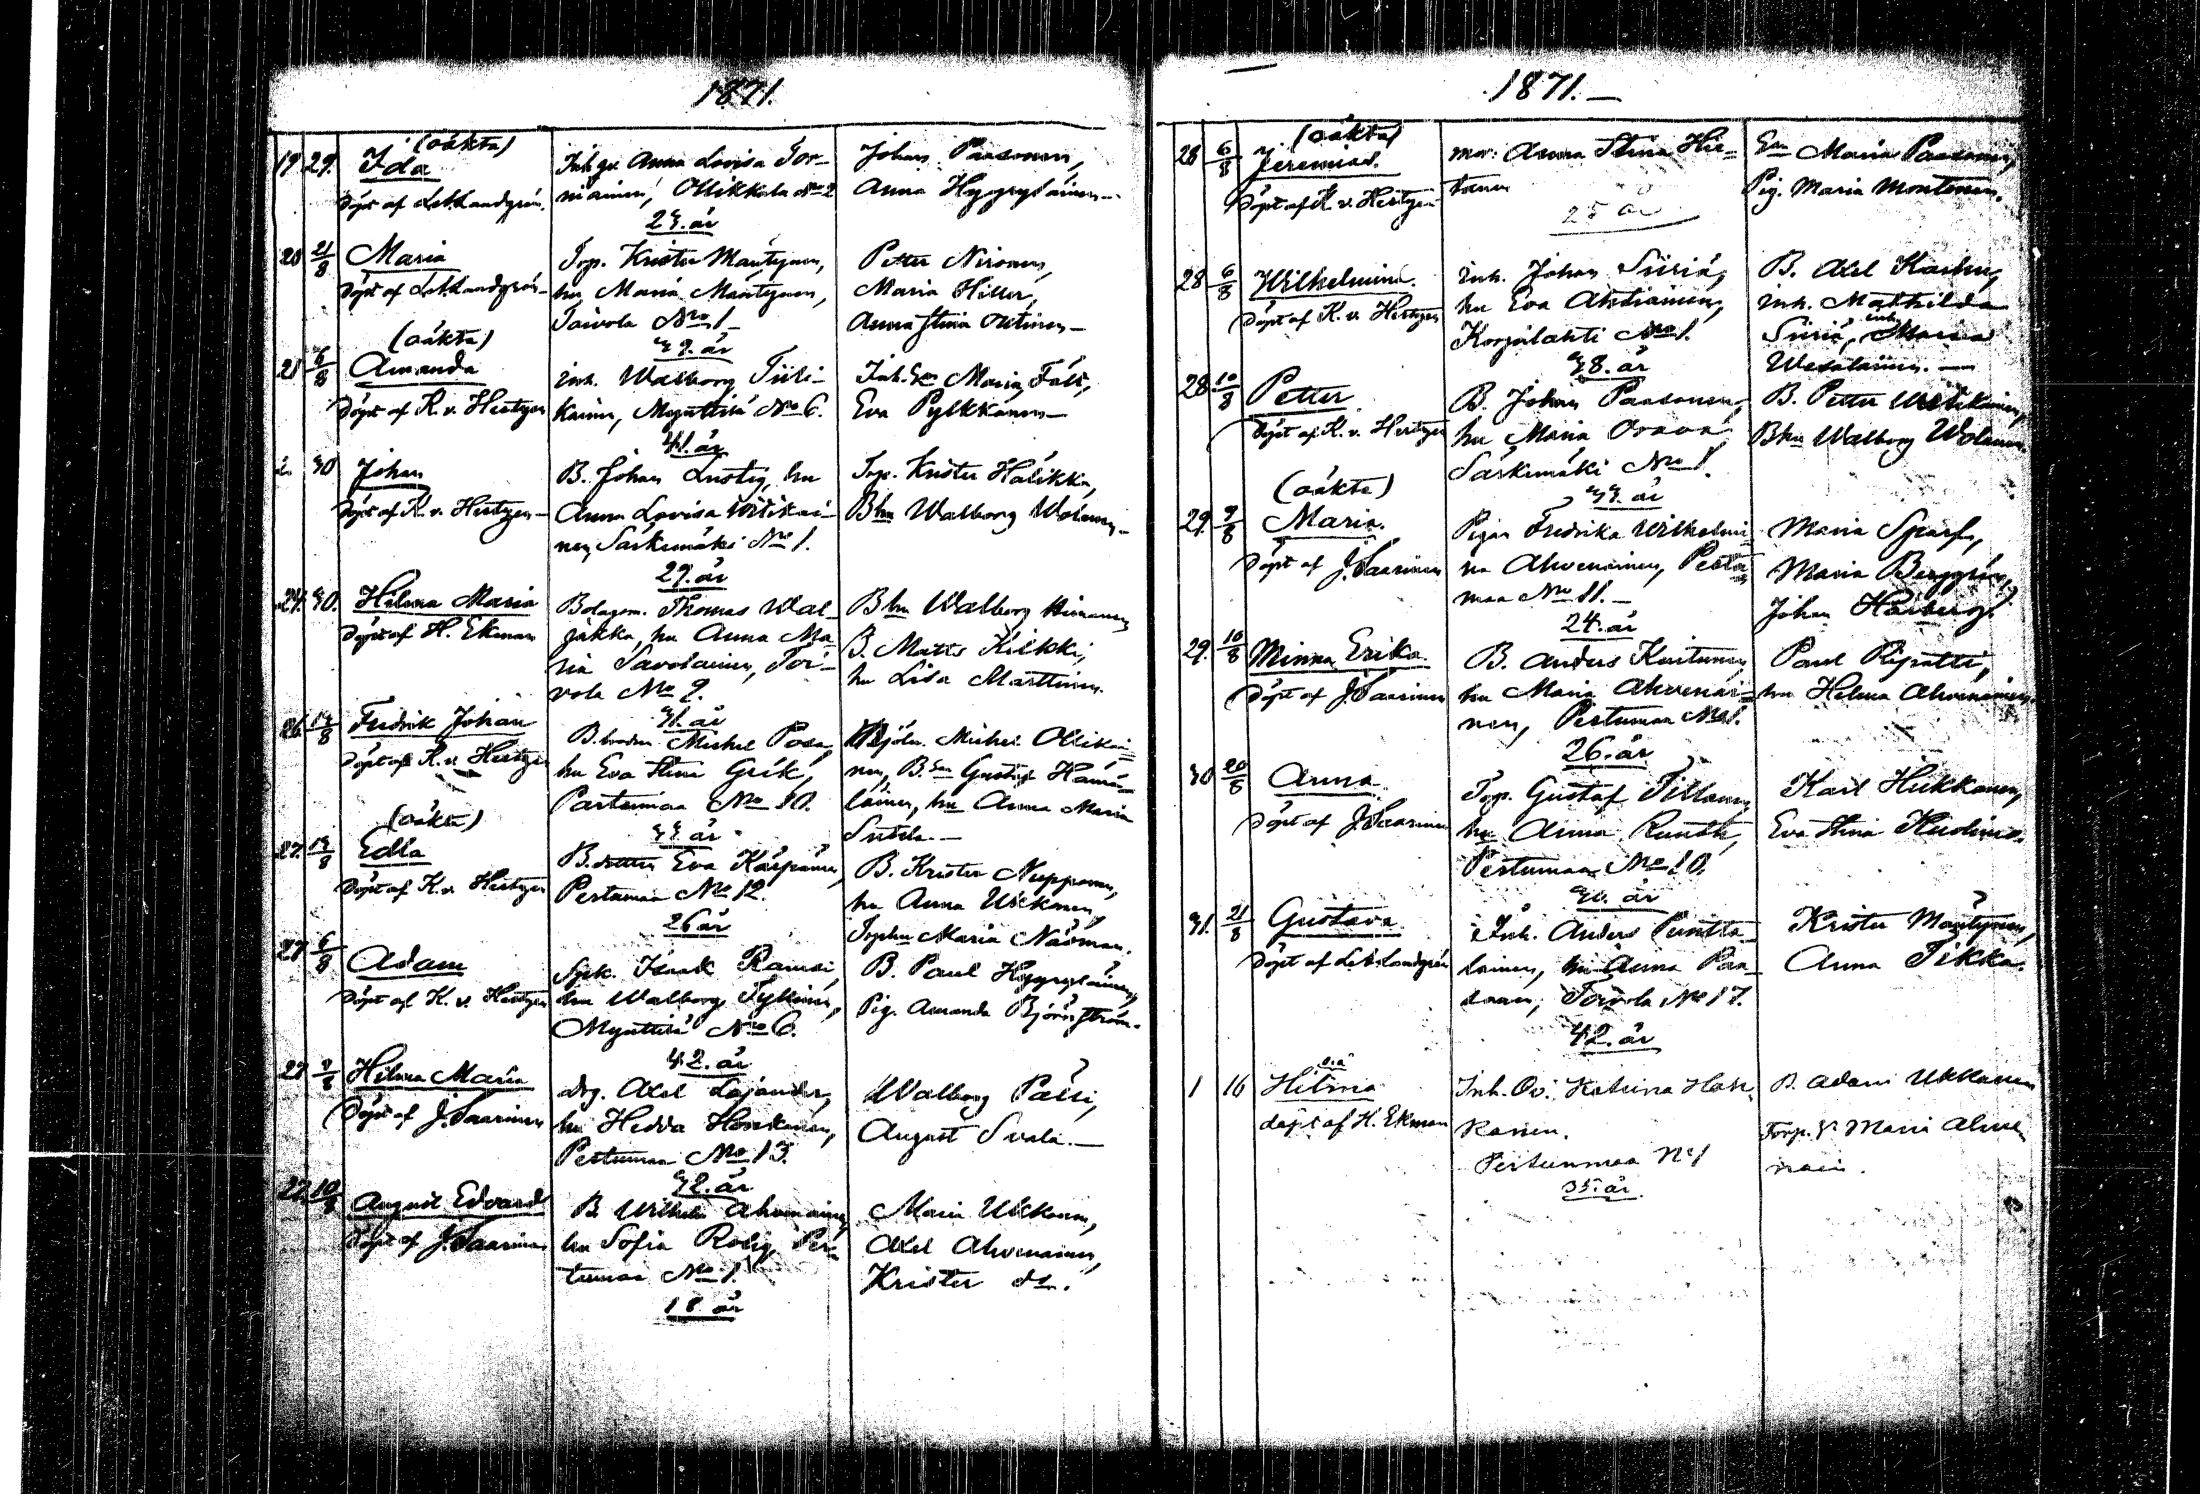 1871.
19 29. (oäkta)
Ida
Döpt af L.Landgrén.
Inh. Anna Lovisa Tor-
niainen, Ollikkala No 2
29. år
Johan Paasonen,
Anna Hyyryläinen
20 21/8 Maria
Döpt af Landgrén
Torp. Krister Mäntynen,
hu Maria Mäntynen,
Toivola No 1
39. år
Petter Nironen,
Maria Hiller,
Anna Stina Outinen
(oäkta)
21 6/8 Amanda
Döpt af K. v. Hertzen
inh. Walborg Tiili-
kainen, Mynttilä No 6.
41. år
Inh. Maria Fält,
Eva Pylkkänen
30 Johan
Döpt af K. v. Hertzen
B. Johan Lustig, hu
Anna Lovisa Witikai-
nen, Särkemäki No 1.
29. år
Torp. Krister Halikka,
Bhu Walborg Wolanen
24. 30. Hilma Maria
Döpt af H. Ekman
Bolagsm. Thomas Wal-
jakka, hu Anna Ma-
ria Savolainen, Toi-
vola No 9.
31. år
Bhu Walborg Himanen
B. Matts Kilkki,
hu Lisa Marttinen.
26. 13/8 Fredrik Johan
Döpt af K. v. Hertzen
B.broder Michel Posa,
hu Eva Stina Gråk,
Partumaa No 10.
33 år
Mjöln. Michel Ollikai-
nen, B.son Gustaf Hämä-
läinen, hu Anna Maria
Sutela.
(oäkta)
27. 13/8 Edla
Döpt af K. v. Hertzen
B. Eva Kärpänen,
Pertumaa No 12.
26 år
B. Krister Nupponen,
hu Anna Ukkonen,
Torphu Maria Näsman.
27 6/8 Adam
Döpt af K. v. Hertzen
Isaak Ramsi,
hu Walborg Tykinen,
Mynttilä No 6.
42. år
B. Paul Hyyryläinen,
Pig. Amanda Björnström.
27 9/8 Hilma Maria
Döpt af J. Saarinen
drg. Axel Lojander,
hu Hedda Honkanen,
Pertumaa No 13.
32. år
Walborg Pätsi,
August Svala.
27. 10/8 August Edvard
Döpt af J. Saarinen
B. Wilhelm Ahvenainen,
hu Sofia Roslig, Per-
tumaa No 1.
18 år
Maria Ukkonen,
Axel Ahvenainen,
Krister do.
1871.
(oäkta)
28 6/8 Jeremias.
Döpt af K. v. Hertzen
mor: Anna Stina Hie-
tanen
25 år
Maria Paasonen,
Pig. Maria Montonen.
28 6/8 Wilhelmina.
Döpt af K. v. Hertzen
inh. Johan Siiriä,
hu Eva Ahtiainen,
Korpilahti No 1.
38. år
B. Axel Karhu,
inh. Mathilda
Siiriä, inh. Maria
Wesalainen.
28. 10/8 Petter
Döpt af K. v. Hertzen
B. Johan Paasonen,
hu Maria Orava,
Särkemäki No 1.
33. år
B. Petter Witikainen,
Bhu Walborg Wolanen
(oäkta)
29. 9/8 Maria.
Döpt af J. Saarinen
Pigan Fredrika Wilhelmi-
na Ahvenainen, Pertu-
maa No 11.
24. år
Maria Sparf,
Maria Berggrén,
Johan Harberg.
29. 10/8 Minna Erika.
Döpt af J. Saarinen
B. Anders Kurtunen,
hu Maria Ahvenai-
nen, Pertumaa No 1.
26. år
Paul Ripatti,
hu Helena Ahvenainen.
30 20/8 Anna.
Döpt af J. Saarinen
Torp. Gustaf Tillanen,
hu Anna Rundk,
Pertumaa No 10.
30. år
Karl Hukkanen,
Eva Stina Huolina.
31. 21/8 Gustava
Döpt af Landgrén
Inh. Anders Puntta-
lainen, hu Anna Paa-
sonen, Toivola No 17.
42. år
Krister Mäntynen,
Anna Tikka.
1 16 Hilma
döpt af H. Ekman
Inh. Katrina Hak-
kanen.
Pertunmaa No 1
35. år.
B. Adam Ukkonen
Torp. Maria Ahve-
nain.